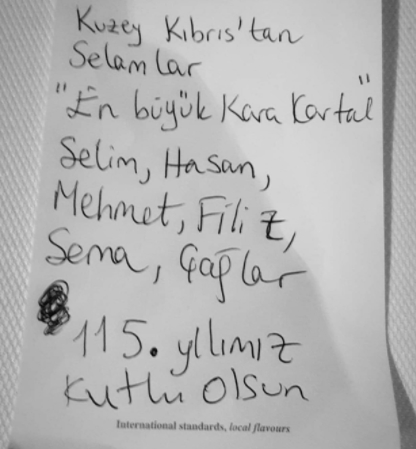 Kuzey Kıbrıs'tan
Selamlar
"En büyük Kara Kartal"
Selim, Hasan,
Mehmet, Filiz,
Sema, Çağlar
115. yıllımız
Kutlu Olsun
International standards, local flavours